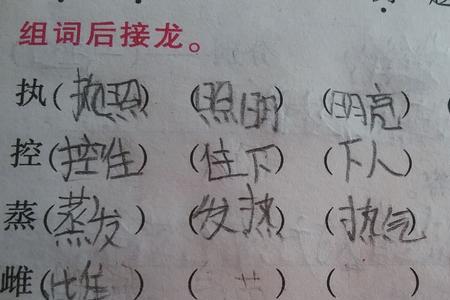 组词后接龙。
执(执照) (照明) (明亮)
控(控住) (住下) (下人)
蒸(蒸发) (发热) (热气)
雌( ) ( ) ( )